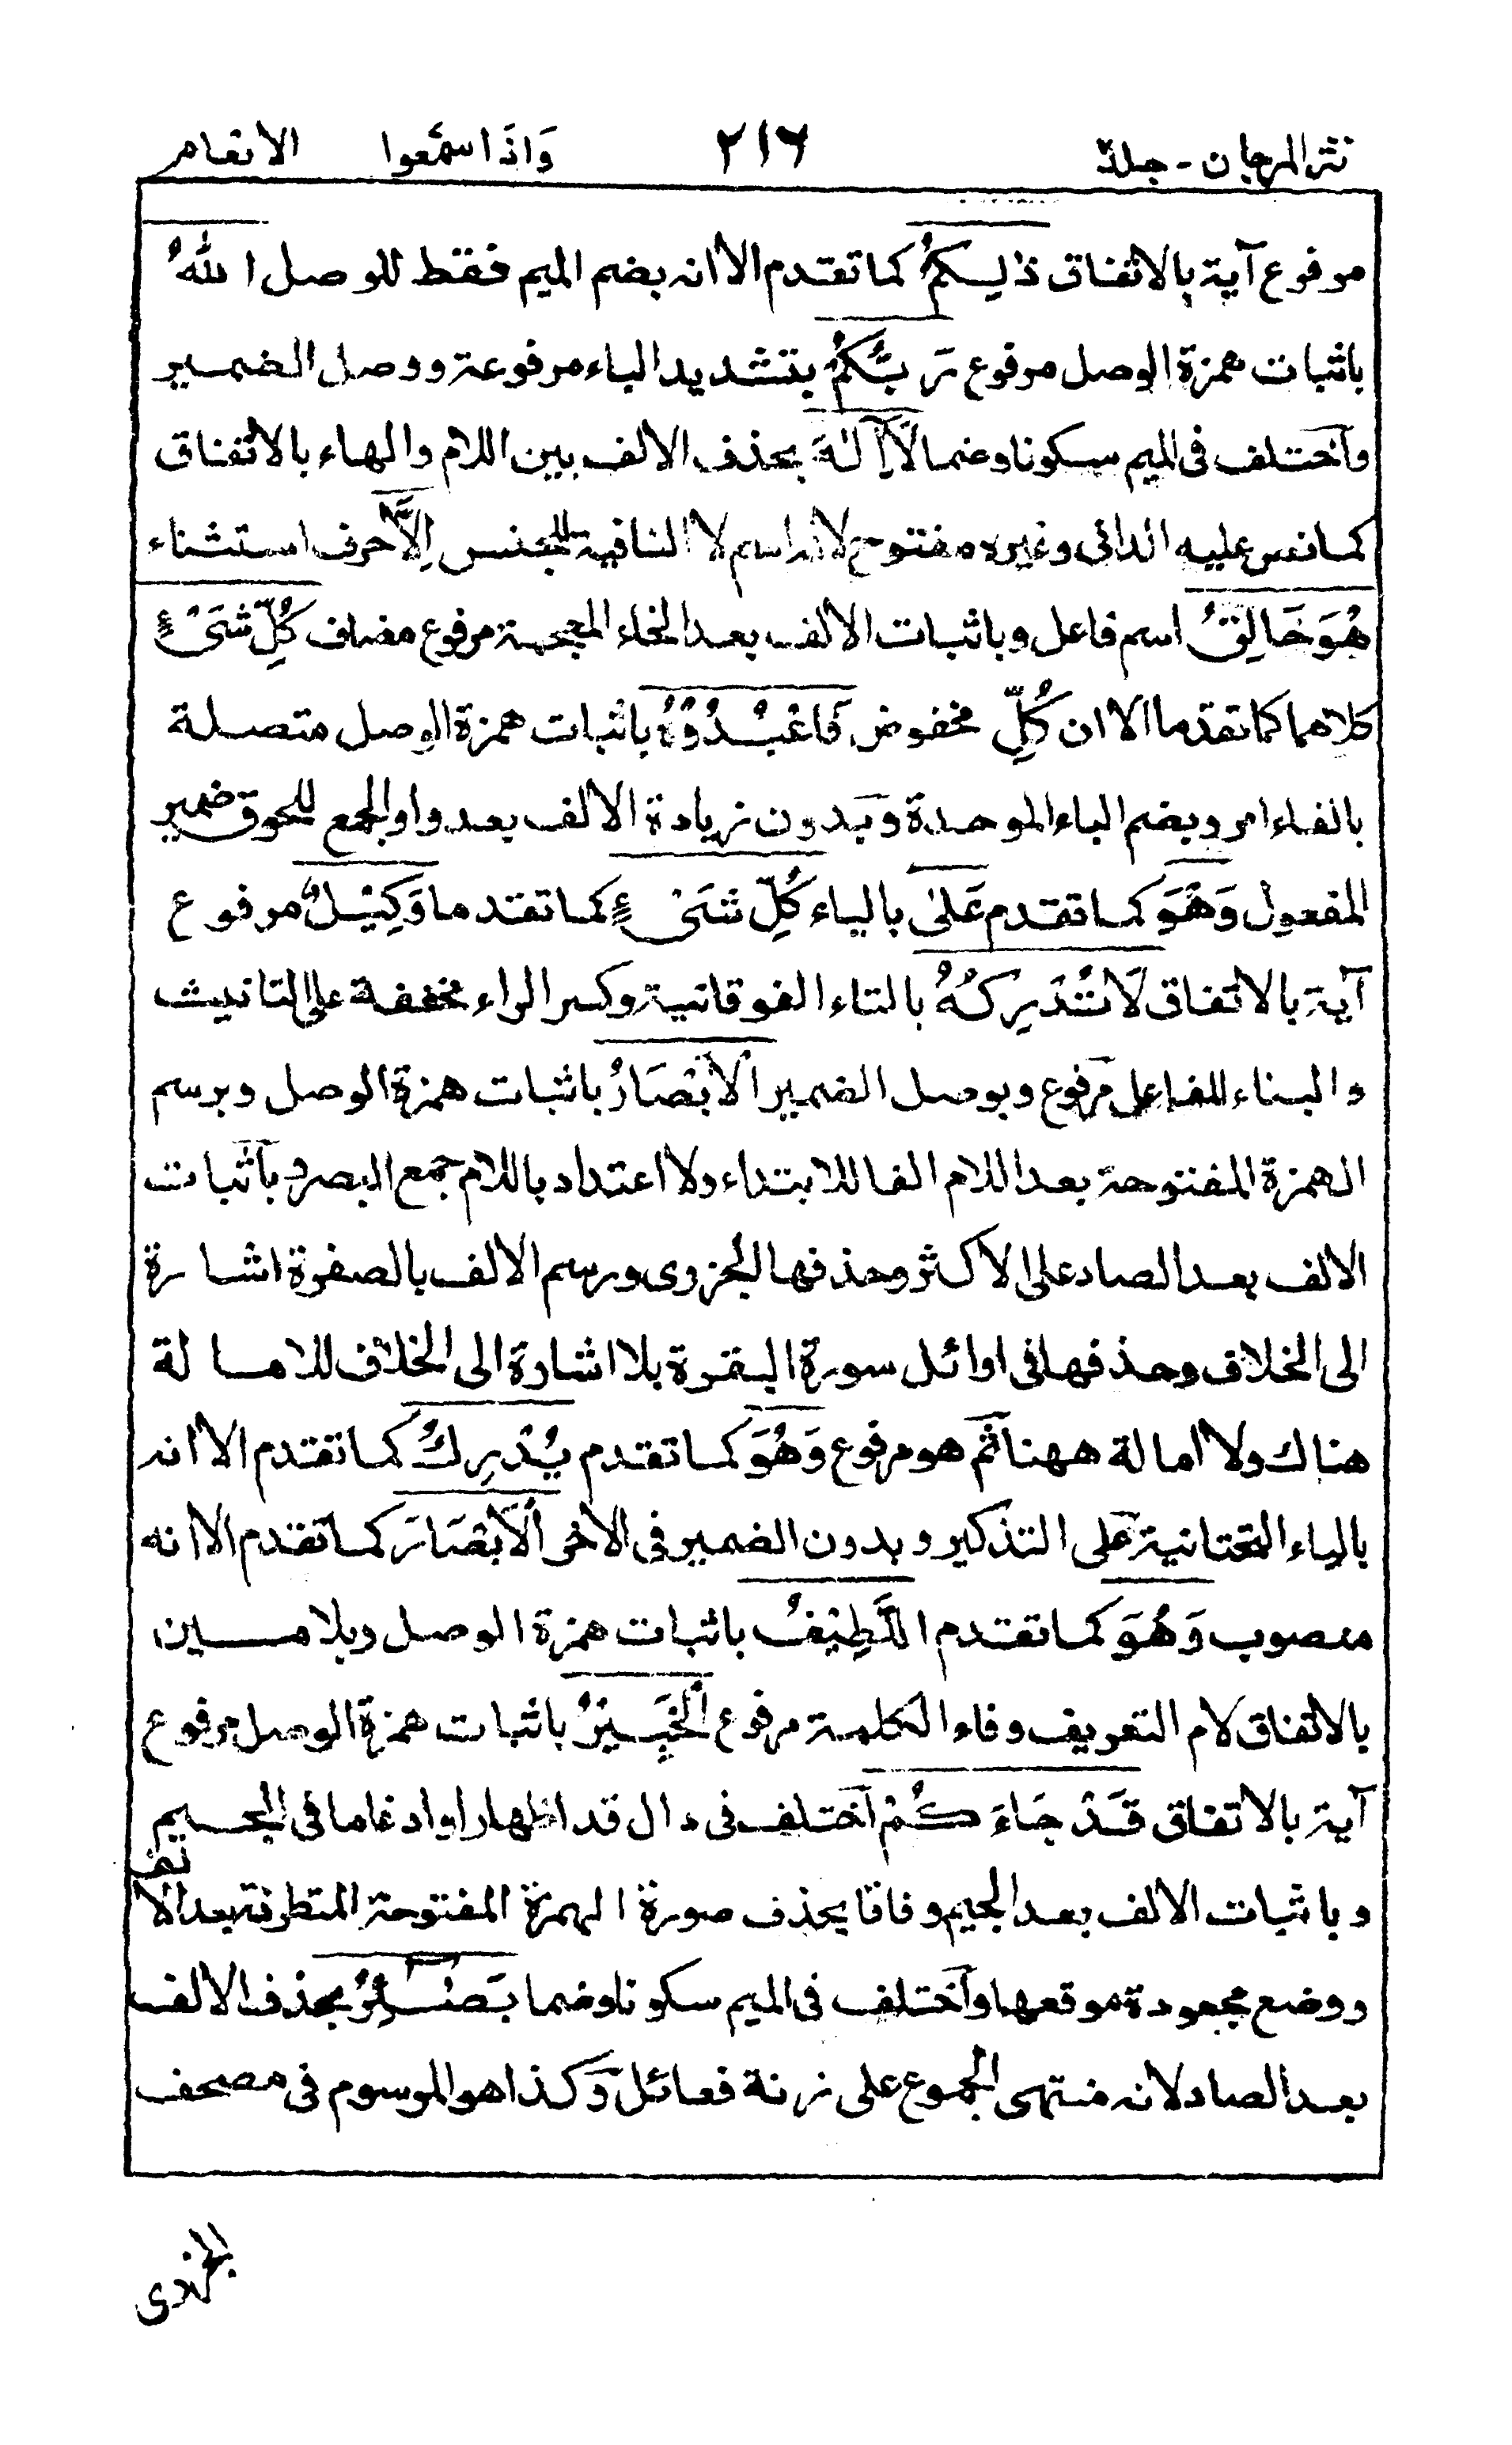 نثر المرجان - جلد ٢١٦ وَاذَا سمَعوا الانعام
مرفوع آية بالاتفاق ذٰلِكُمُ كما تقدم الا انه بضم الميم فقط للوصل اللهُ
باثبات همزة الوصل مرفوع رَبُّكُمْ بتشديد الباء مرفوعة ووصل الضمير
وآختلف فى الميم سكونا وضما لَآ اِلٰهَ بحذف الالف بين اللام والهاء بالاتفاق
كما نص عليه الدانى وغيره مفتوح لانه اسم لا النافية للجنس اِلَّا حرف استثناء
هُوَ خَالِقُ اسم فاعل وباثبات الالف بعد الخاء المعجمة مرفوع مضاف كُلِّ شَىْءٍ
كلاهما كما تقدما الا ان كُلِّ مخفوض فَاعْبُدُوْهُ باثبات همزة الوصل متصلة
بالفاء امر وبضم الباء الموحدة وبدون زيادة الالف بعد واو الجمع للحوق ضمير
المفعول وَهُوَ كما تقدم عَلىٰ بالياء كُلِّ شَىْءٍ كما تقدما وَكِيْلٌ مرفوع
آية بالاتفاق لَا تُدْرِكُهُ بالتاء الفوقانية وكسر الراء مخففة على التانيث
والبناء للفاعل مرفوع وبوصل الضمير الْاَبْصَارُ باثبات همزة الوصل وبرسم
الهمزة المفتوحة بعد اللام الفا للابتداء ولا اعتداد باللام جمع البصر وبآثبات
الالف بعد الصاد على الاكثر وحذفها الجزرى ورسم الالف بالصفرة اشارة
الى الخلاف وحذفها فى اوائل سورة البقرة بلا اشارة الى الخلاف للامالة
هناك ولا امالة ههنا ثم هو مرفوع وَهُوَ كما تقدم يُدْرِكُ كما تقدم الا انه
بالياء التحتانية على التذكير وبدون الضمير فى الآخر الْاَبْصَارَ كما تقدم الا انه
منصوب وَهُوَ كما تقدم اللَّطِيْفُ باثبات همزة الوصل وبلامين
بالاتفاق لام التعريف وفاء الكلمة مرفوع الْخَبِيْرُ باثبات همزة الوصل مرفوع
آية بالاتفاق قَدْ جَاءَكُمْ آختلف فى دال قد اظهارا وادغاما فى الجيم
وباثبات الالف بعد الجيم وفاقا بحذف صورة الهمزة المفتوحة المتطرفة بعد الالف
ووضع مجعودة موقعها وآختلف فى الميم سكونا وضما بَصَٰئِرُ بحذف الالف
بعد الصاد لانه منتهى الجموع على زنة فعائل وكذا هو المرسوم فى مصحف
الجزرى